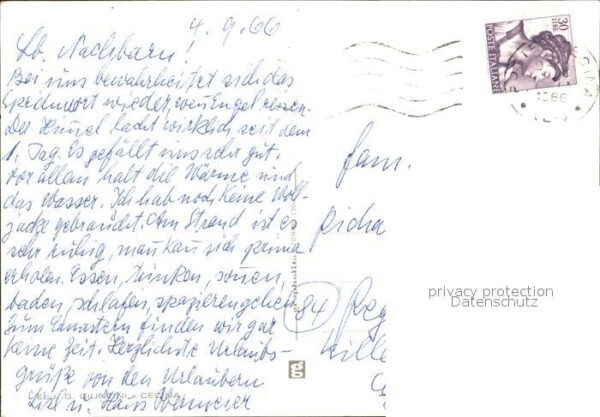 4.9.66
Lb. Nachbarn!
Bei uns bewahrheitet sich das
Sprichwort wieder wenn Engel reisen.
Der Himmel lacht wirklich seit dem
1. Tag. Es gefällt uns sehr gut,
vor allem halt die Wärme und
das Wasser. Ich hab noch keine Woll-
jacke gebraucht. Am Strand ist es
sehr ruhig, man kan sich prima
erholen. Essen, Trinken, sonnen,
baden, schlafen, spazierengehen
Zum finden wir gar
keine Zeit. Herzlichste Urlaubs-
grüße von den Urlaubern
Lisl u. Hans
G. GIUNTINI - CECINA
30
LIRE
POSTE ITALIANE
1966
Fam.
Richa
(84) Reg
privacy protection
Datenschutz
g